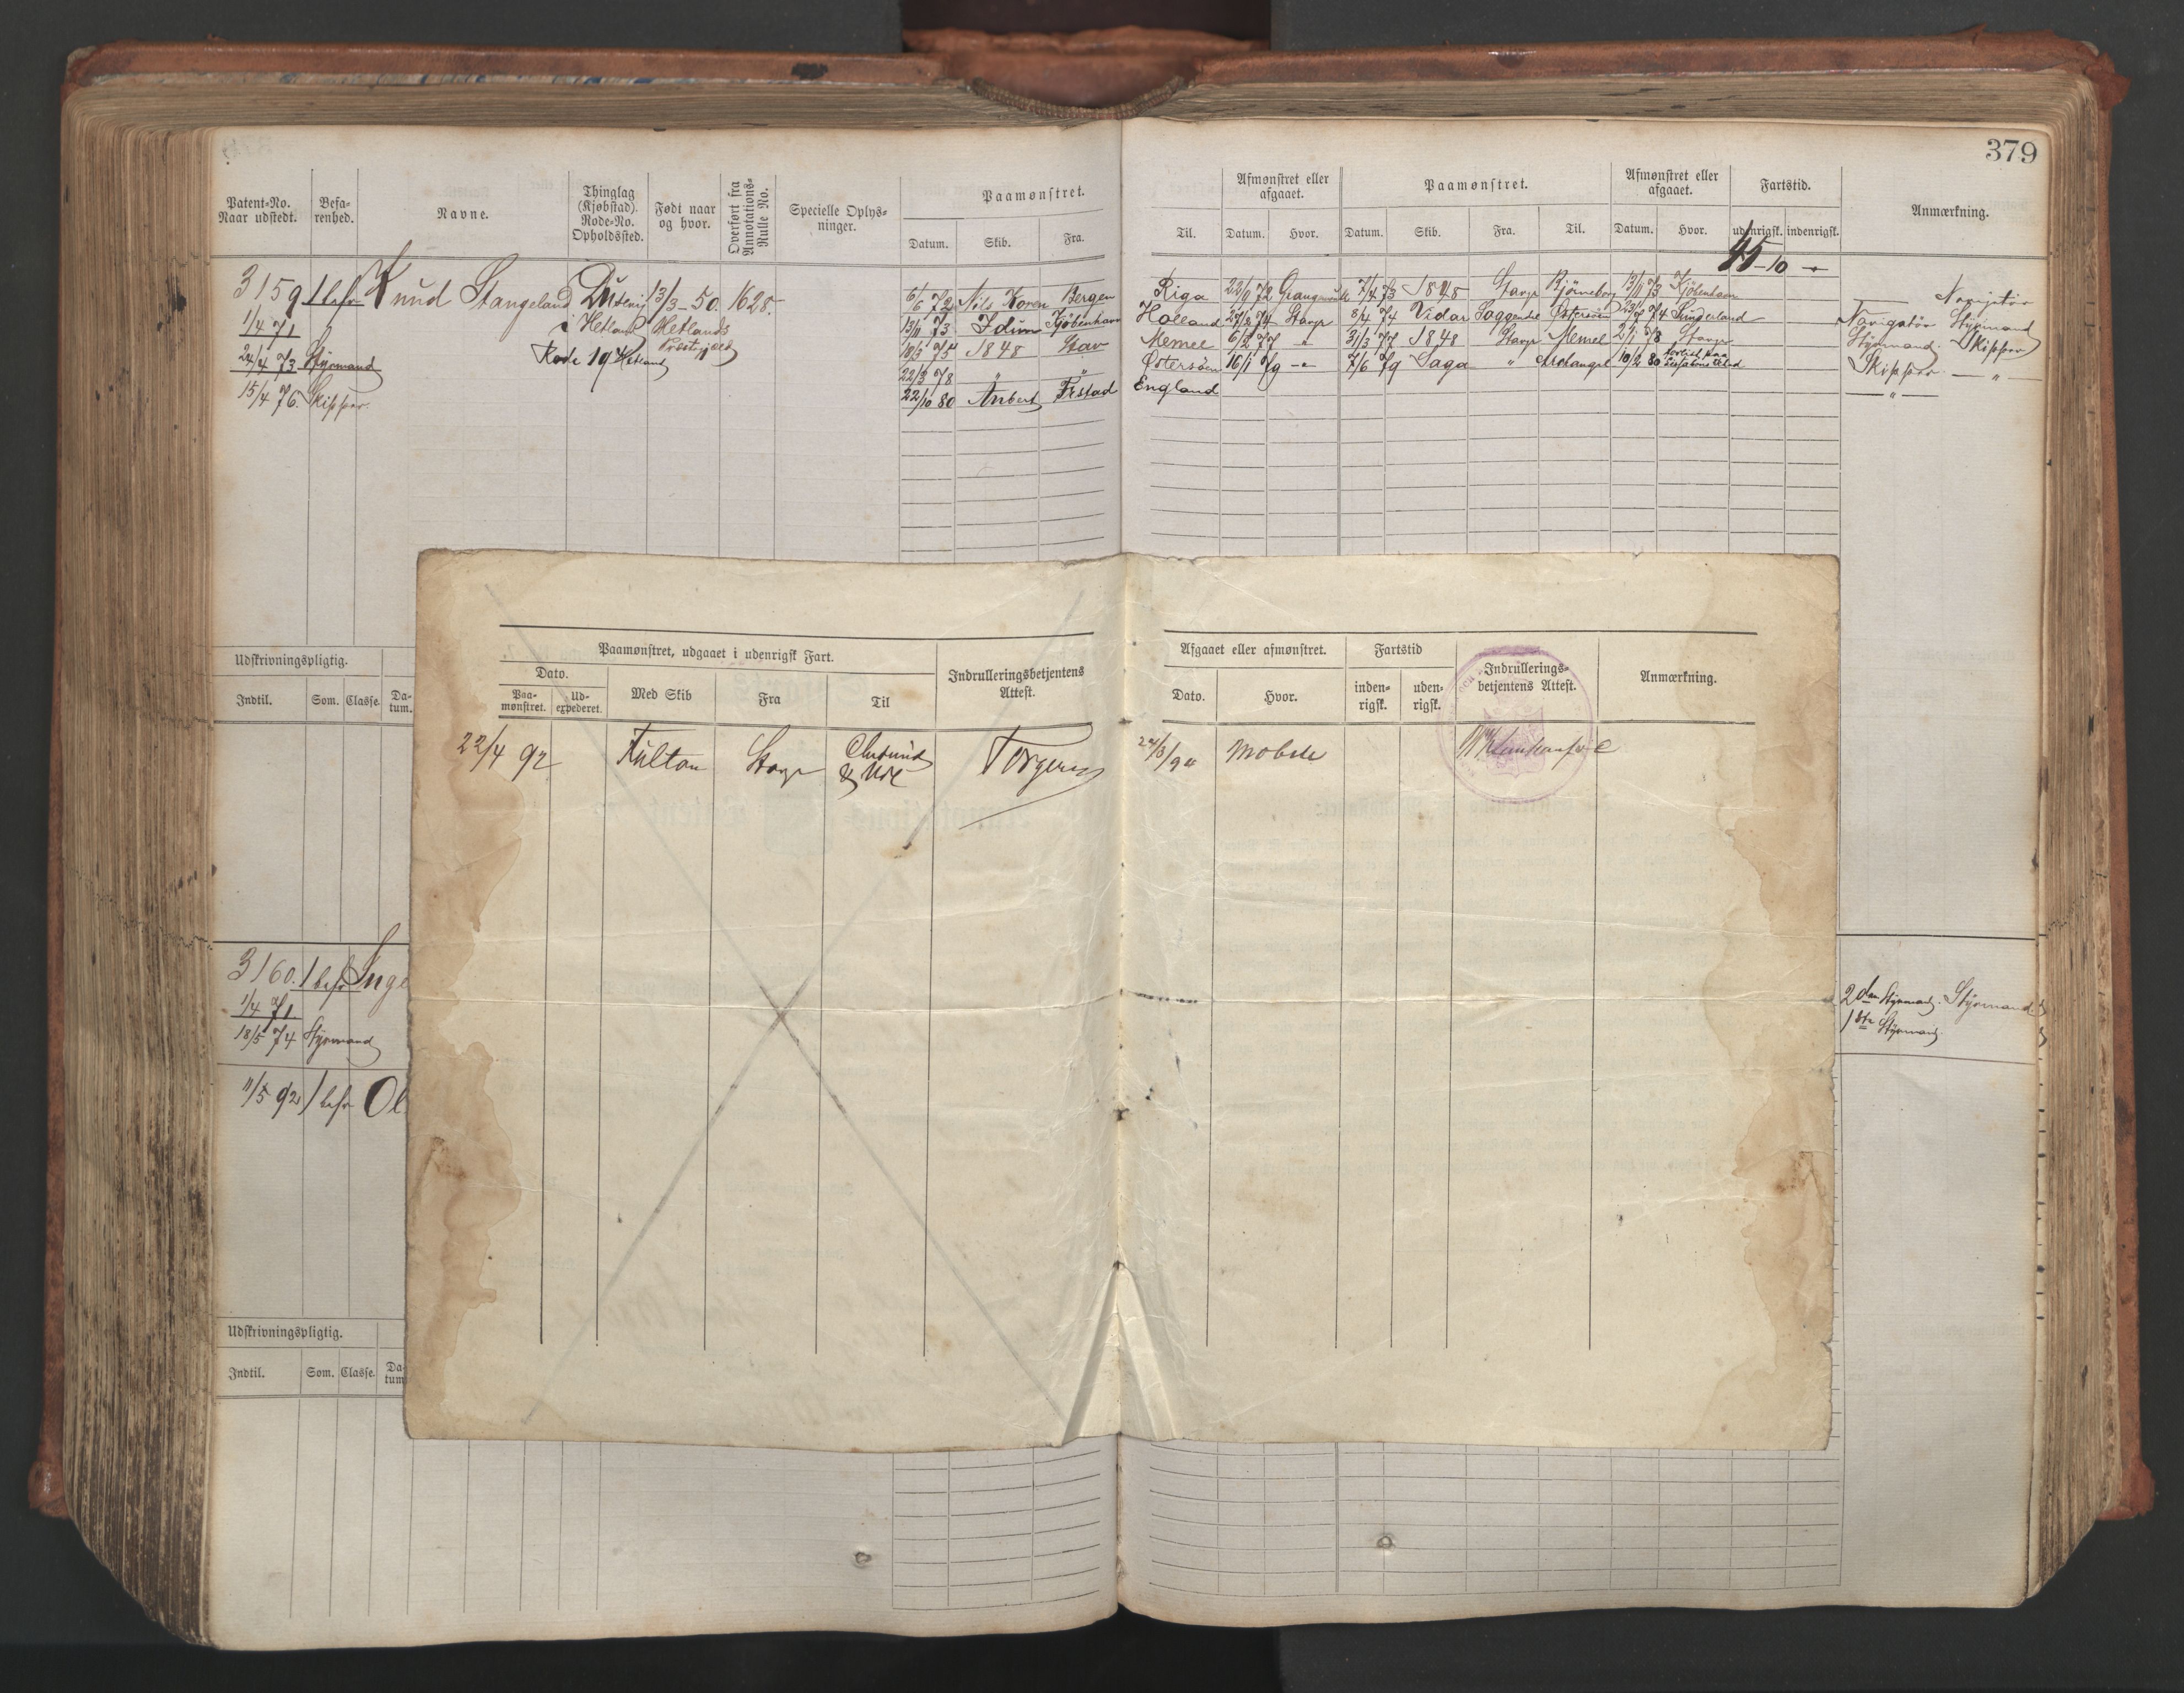 379
Patent-No. Naar udstedt. Befarenhed. Navne. Thinglag (Kjøbstad). Rode-No. Opholdssted. Født naar og hvor. Overført fra Annotations-Rulle No. Specielle Oplysninger. Paamønstret. Datum. Skib. Fra.
Til. Afmønstret eller afgaaet. Datum. Hvor. Paamønstret. Datum. Skib. Fra. Til. Afmønstret eller afgaaet. Datum. Hvor. Fartstid. udenrigsk. indenrigsk. Anmærkning.
45-10 -"-
3159 1 befr Knud Stangeland 13/3-50. 1628. 6/6 72 Nils Koren Bergen Riga 22/9 72 7/4 73 1848 Stavgr Bjørneborg 13/11 73 Kjøbenhavn Navigatør
1/4 71 i Hetland Hetlands Præstegjæld 13/11 73 Idun Kjøbenhavn Holland 27/2 74 Stavgr 8/4 74 Vidar Østersøen 74 Sunderland Navigatør Styrmand
24/4 73 Styrmand Rode 19 Hetland 18/3 75 1848 Stav Memel 6/2 77 " 31/3 77 1848 Stavgr Memel 2/1 78 Stavgr Styrmand. Skipper
15/4 76. Skipper. 22/3 78 " " Østersøen 16/1 79 -"- 7/6 79 Saga " Archangel 10/2 80 Skipper. —"—
22/10 80 Frstad England —"—
Udskrivningspligtig.
Indtil. Som. Classe. Datum.
3160. 1 befr Inge
1/4 71
18/5 74 Styrmand
2den Styrmand. Styrmand.
1ste Styrmand.
11/5 92 1 befr Ol
Udskrivningspligtig.
Indtil. Som. Classe. Datum
Paamønstret, udgaaet i udenrigsk Fart. Indrulleringsbetjentens Attest.
Dato. Paamønstret. Udexpederet. Med Skib Fra Til
22/4 92 Fultan Stavgr
Afgaaet eller afmønstret. Fartstid Indrulleringsbetjentens Attest. Anmærkning.
Dato. Hvor. indenrigsk. udenrigsk.
Mobile